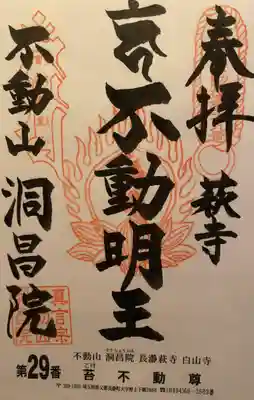 奉拝
萩寺
不動明王
不動山
洞昌院
真言宗
不動山 洞昌院 長瀞萩寺 白山寺
第29番
苔不動尊